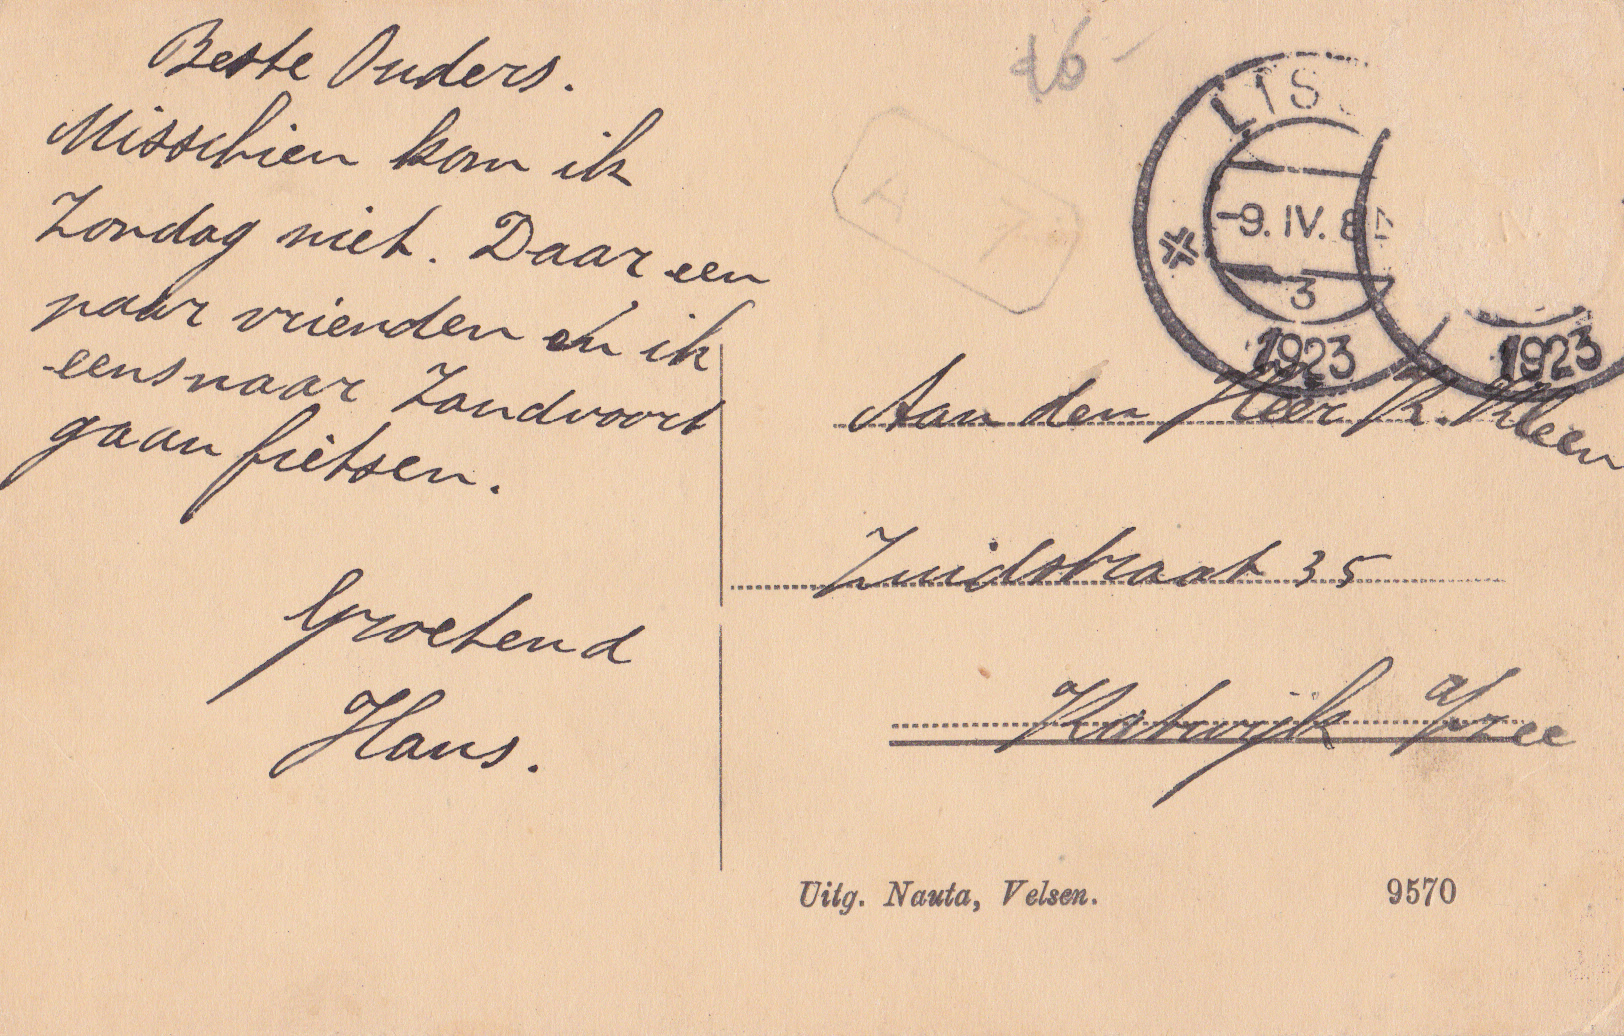 Beste Ouders.
Misschien kom ik
Zondag niet. Daar een
paar vrienden en ik
eens naar Zandvoort
gaan fietsen.
Groetend
Hans.
LIS
-9. IV. 8
3
1923
1923
Aan den Heer K. Kleen
Zuidstraat 35
Katwijk a/zee
Uitg. Nauta, Velsen.
9570